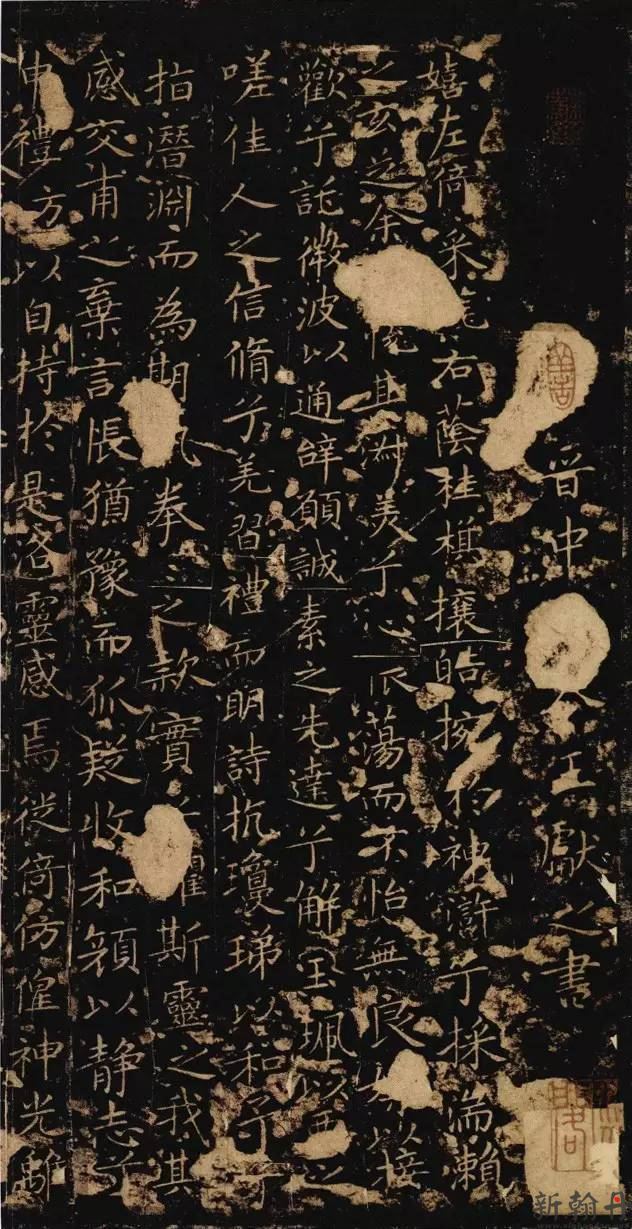 晋中令王獻之書
嬉左倚采旄右蔭桂旗攘皓捥於神滸兮採湍瀨
之玄芝余悅其淑美兮心振蕩而不怡無良以接
歡兮託微波以通辭願誠素之先達兮解玉珮以要之
嗟佳人之信脩兮羌習禮而明詩抗瓊珶以和予兮
指潛淵而為期執拳〻之款實兮懼斯靈之我其
感交甫之棄言悵猶豫而狐疑收和顏以静志兮
申禮方以自持於是洛靈感焉徙倚仿偟神光離
新翰